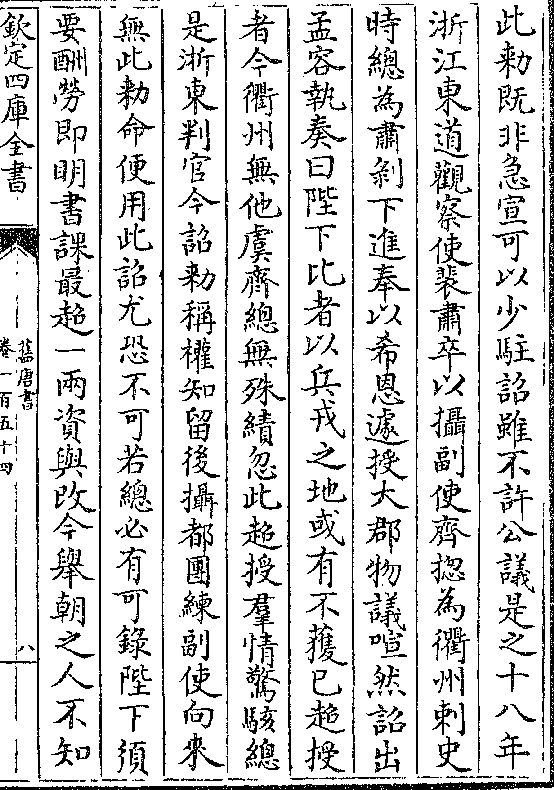 此勅既非急宣可以少駐詔雖不許公議是之十八年
浙江東道觀察使裴肅卒以攝副使齊揔為衢州刺史
時總為肅剝下進奉以希恩遽授大郡物議喧然詔出
孟容執奏曰陛下比者以兵戎之地或有不獲已超授
者今衢州無他虞齊總無殊績忽此超授羣情驚駭總
是浙東判官今詔勅稱權知留後攝都團練副使向來
無此勅命便用此詔尤恐不可若總必有可錄陛下須
要酬勞即明書課最超一兩資與改今舉朝之人不知
欽定四庫全書
舊唐書
卷一百五十四
八